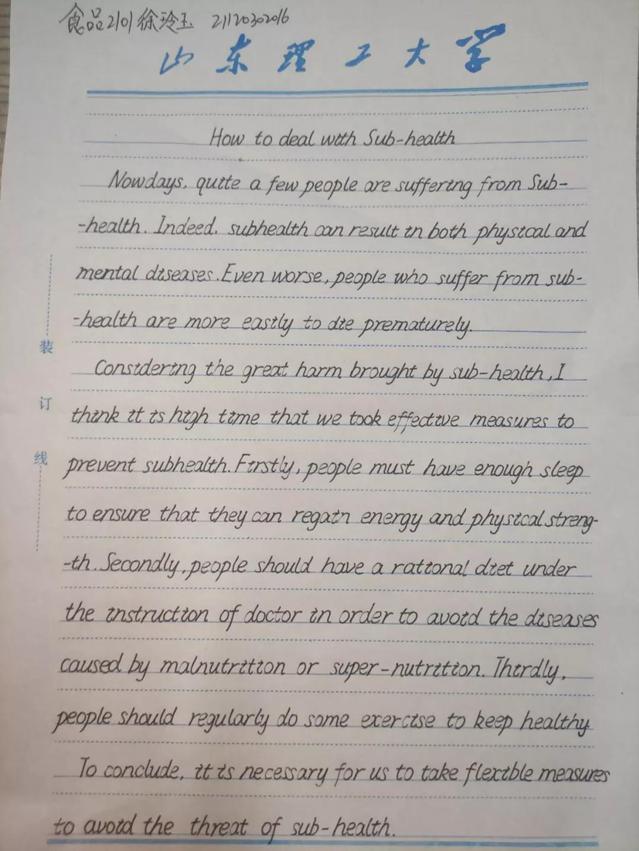 食品2101 徐玲玉 21120302016
山东理工大学
How to deal with Sub-health
Nowdays, quite a few people are suffering from Sub-
-health. Indeed, subhealth can result in both physical and
mental diseases. Even worse, people who suffer from sub-
-health are more easily to die prematurely.
Considering the great harm brought by sub-health, I
think it is high time that we took effective measures to
prevent subhealth. Firstly, people must have enough sleep
to ensure that they can regain energy and physical streng-
-th. Secondly, people should have a rational diet under
the instruction of doctor in order to avoid the diseases
caused by malnutrition or super-nutrition. Thirdly,
people should regularly do some exercise to keep healthy
To conclude, it is necessary for us to take flexible measures
to avoid the threat of sub-health.
装
订
线